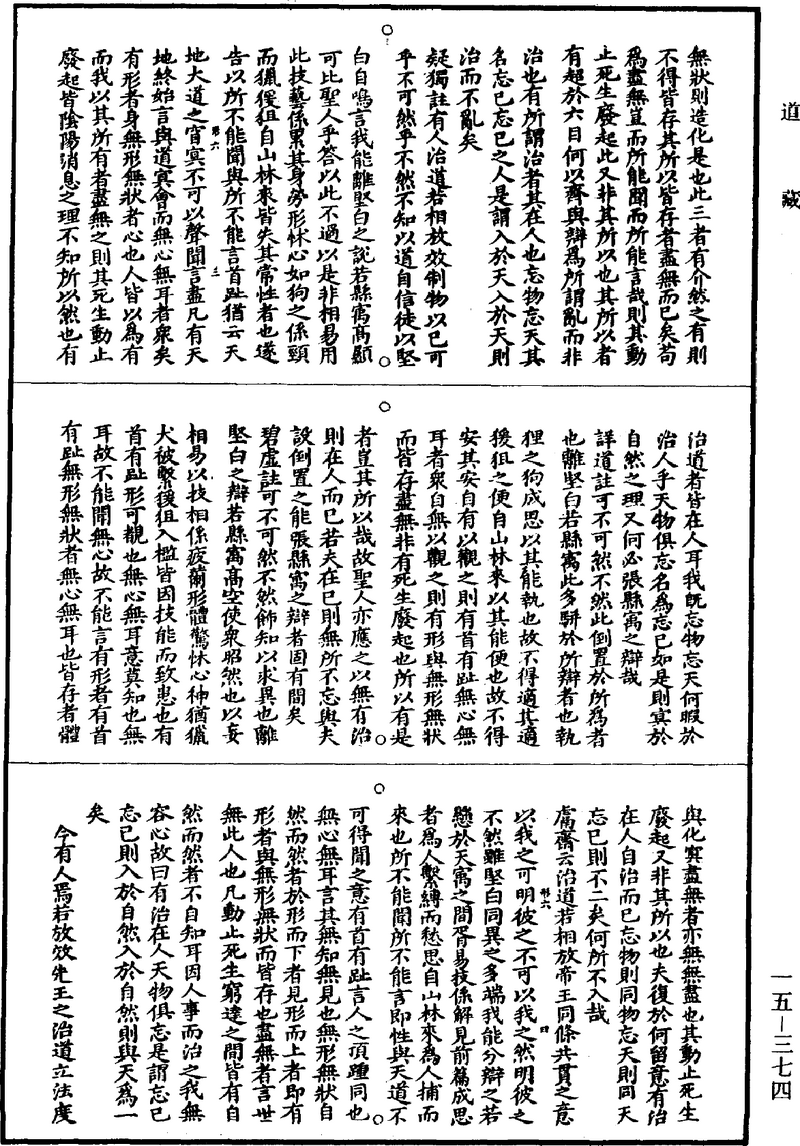 道藏
無狀則造化是也此三者有介然之有則
不得皆存其所以皆存者盡無而已矣苟
為盡無豈而所能聞而所能言哉則其動
止死生廢起此又非其所以也其所以者
有起於六日何以齊與辯為所謂亂而非
治也有所謂治者其在人也忘物忘天其
名忘已忘已之人是謂入於天入於天則
治而不亂矣
疑獨註有人治道若相放效制物以已可
乎不可然乎不然不知以道自信徒以堅
白自鳴言我能離堅白之說若縣㝢高顯
可比聖人乎答以此不過以是非相易用
此技藝係累其身勞形怵心如狗之係頸
而獵猨狙自山林來皆失其常性者也遂
告以所不能聞與所不能言首趾猶云天
形六
三
地大道之窅冥不可以聲聞言盡凡有天
地終始言與道冥會而無心無耳者衆矣
有形者身無形無狀者心也人皆以為有
而我以其所有者盡無之則其死生動止
廢起皆陰陽消息之理不知所以然也有
治道者皆在人耳我既忘物忘天何暇於
治人乎天物俱忘名為忘已如是則冥於
自然之理又何必張縣㝢之辯哉
詳道註可不可然不然此倒置於所為者
也離堅白若縣㝢此多駢於所辯者也執
狸之狗成思以其能執也故不得適其適
猨狙之便自山林來以其能便也故不得
安其安自有以觀之則有首有趾無心無
耳者衆自無以觀之則有形與無形無狀
而皆存盡無非有死生廢起也所以有是
者豈其所以哉故聖人亦應之以無有治
則在人而已若夫在已則無所不忘與夫
設倒置之能張縣㝢之辯者固有間矣
碧虛註可不可然不然飾知以求異也離
堅白之辯若縣㝢高空使衆昭然也以妄
相易以技相係疲薾形體驚怵心神猶獵
犬被繫猨狙入檻皆因技能而致患也有
首有趾形可觀也無心無耳意莫知也無
耳故不能聞無心故不能言有形者有首
有趾無形無狀者無心無耳也皆存者體
與化冥盡無者亦無無盡也其動止死生
廢起又非其所以也夫復於何留意有治
在人自治而已忘物則同物忘天則同天
忘已則不二矣何所不入哉
鬳齋云治道若相放帝王同條共貫之意
形六
四
以我之可明彼之不可以我之然明彼之
不然雖堅白同異之多端我能分辯之若
懸於天㝢之間胥易技係解見前篇成思
者為人繫縛而愁思自山林來為人捕而
來也所不能聞所不能言即性與天道不
可得聞之意有首有趾言人之頂踵同也
無心無耳言其無知無見也無形無狀自
然而然者於形而下者見形而上者即有
形者與無形無狀而皆存也盡無者言世
無此人也凡動止死生窮達之間皆有自
然而然者不自知耳因人事而治之我無
容心故曰有治在人天物俱忘是謂忘已
忘已則入於自然入於自然則與天為一
矣
今有人焉若放效先王之治道立法度
一五－三七四